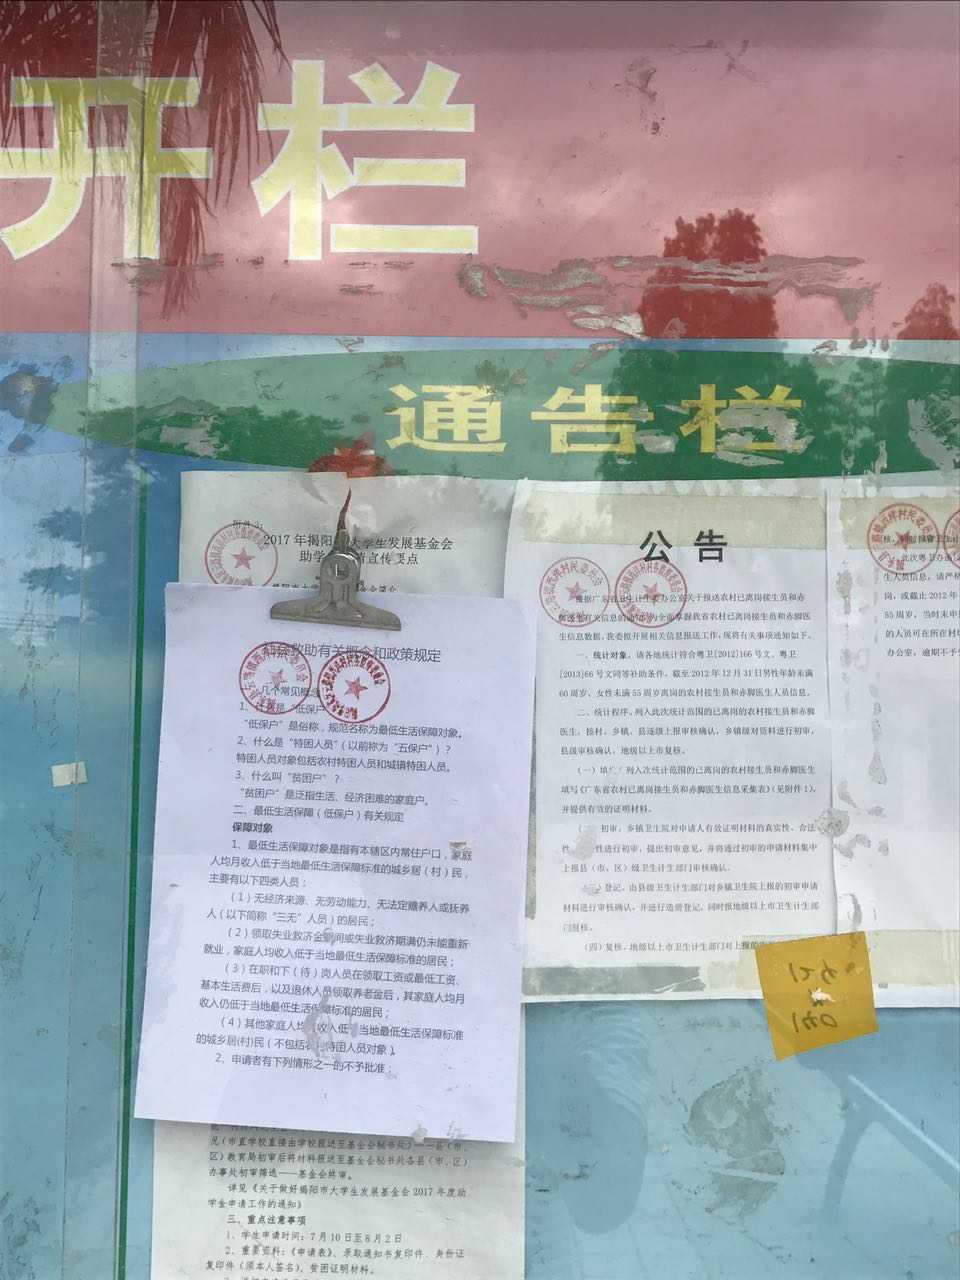 开栏
通告栏
附件3:
2017年揭阳市大学生发展基金会
助学
请宣传要点
社会救助有关概念和政策规定
几个常见概念
1、什么是“低保户”
“低保户”是俗称，规范名称为最低生活保障对象。
2、什么是“特困人员”（以前称为“五保户”）？
特困人员对象包括农村特困人员和城镇特困人员。
3、什么叫“贫困户”？
“贫困户”是泛指生活、经济困难的家庭户。
二、最低生活保障（低保户）有关规定
保障对象
1、最低生活保障对象是指有本辖区内常住户口，家庭
人均月收入低于当地最低生活保障标准的城乡居（村）民，
主要有以下四类人员：
（1）无经济来源、无劳动能力、无法定赡养人或抚养
人（以下简称“三无”人员）的居民；
（2）领取失业救济金期间或失业救济期满仍未能重新
就业，家庭人均收入低于当地最低生活保障标准的居民；
（3）在职和下（待）岗人员在领取工资或最低工资、
基本生活费后，以及退休人员领取养老金后，其家庭人均月
收入仍低于当地最低生活保障标准的居民；
（4）其他家庭人均 收入低 当地最低生活保障标准
的城乡居(村)民（不包括农村特困人员对象）。
2、申请者有下列情形之一的不予批准：
1
况（市直学校直接由学校报送至基金会秘书处）——县（市、
区）教育局初审后将材料报送至基金会秘书处各县（市、区）
办事处初审筛选——基金会终审。
详见《关于做好揭阳市大学生发展基金会2017年度助
学金申请工作的通知》
三、重点注意事项
1、学生申请时间：7月10日至8月2日
2、重要资料：《申请表》、录取通知书复印件、身份证
复印件（须本人签名）、贫困证明材料。
公告
根据广东省卫生计生委办公室关于报送农村已离岗接生员和赤
脚医生有关信息的通知，为全面掌握我省农村已离岗接生员和赤脚医
生信息数据，我委拟开展相关信息报送工作，现将有关事项通知如下。
一、统计对象。请各地统计符合粤卫[2012]166号文、粤卫
[2013]66号文同等补助条件，截至2012年12月31日男性年龄未满
60周岁、女性未满55周岁离岗的农村接生员和赤脚医生人员信息。
二、统计程序。列入此次统计范围的已离岗的农村接生员和赤脚
医生，按村、乡镇、县逐级上报审核确认，乡镇级对资料进行初审，
县级审核确认，地级以上市复核。
（一）填 列入次统计范围的已离岗的农村接生员和赤脚医生
填写《广东省农村已离岗接生员和赤脚医生信息采集表》（见附件1），
并提供有效的证明材料。
初审。乡镇卫生院对申请人有效证明材料的真实性、合法
性进行初审，提出初审意见，并将通过初审的申请材料集中
上报县（市、区）级卫生计生部门审核确认。
登记。由县级卫生计生部门对乡镇卫生院上报的初审申请
材料进行审核确认，并进行造册登记，同时报地级以上市卫生计生部
门复核。
（四）复核。地级以上市卫生计生部门对上报的
此次粤卫办函
生人员信息，请严格
岗，或截止2012年
55周岁，当时未申
的人员可在所在村
办公室，逾期不予